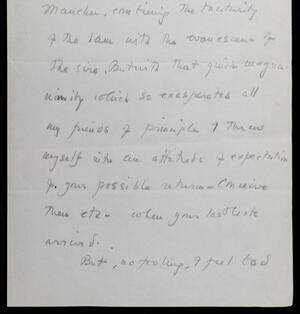 combining the taciturnity
of the dam with the evanescence of
the sire. But with that quick magna-
nimity which so exasperates all
my friends of principle I threw
myself into an attitude of expectation
of your possible return – Conceive
then etc – when your last note
arrived.
But, no fooling, I feel bad